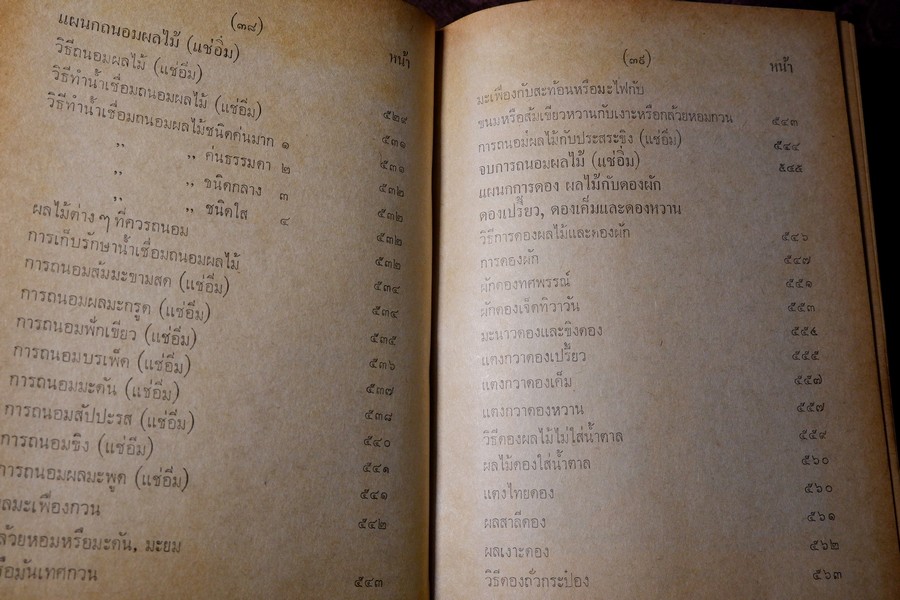 (๓๘)
หน้า
แผนกถนอมผลไม้ (แช่อิ่ม)
วิธีถนอมผลไม้ (แช่อิ่ม) ๕๒๙
วิธีทำน้ำเชื่อมถนอมผลไม้ (แช่อิ่ม) ๕๓๑
วิธีทำน้ำเชื่อมถนอมผลไม้ชนิดค่นมาก ๑ ๕๓๑
,, ,, ค่นธรรมดา ๒ ๕๓๒
,, ,, ชนิดกลาง ๓ ๕๓๒
,, ,, ชนิดใส ๔ ๕๓๒
ผลไม้ต่าง ๆ ที่ควรถนอม ๕๓๒
การเก็บรักษาน้ำเชื่อมถนอมผลไม้ ๕๓๔
การถนอมส้มมะขามสด (แช่อิ่ม) ๕๓๔
การถนอมผลมะกรูด (แช่อิ่ม) ๕๓๕
การถนอมฟักเขียว (แช่อิ่ม) ๕๓๖
การถนอมบรเพ็ด (แช่อิ่ม) ๕๓๗
การถนอมมะดัน (แช่อิ่ม) ๕๓๘
การถนอมสัปปะรส (แช่อิ่ม) ๕๔๐
การถนอมขิง (แช่อิ่ม) ๕๔๑
การถนอมผลมะพูด (แช่อิ่ม) ๕๔๑
ผลมะเฟืองกวน ๕๔๒
กล้วยหอมหรือมะดัน, มะยม
หรือมันเทศกวน ๕๔๓
(๓๙)
หน้า
มะเฟืองกับสะท้อนหรือมะไฟกับ
ขนมหรือส้มเขียวหวานกับเงาะหรือกล้วยหอมกวน ๕๔๓
การถนอมผลไม้กับประสระขิง (แช่อิ่ม) ๕๔๔
จบการถนอมผลไม้ (แช่อิ่ม) ๕๔๕
แผนกการดอง ผลไม้กับดองผัก
ดองเปรี้ยว, ดองเค็มและดองหวาน
วิธีการดองผลไม้และดองผัก ๕๔๖
การดองผัก ๕๔๗
ผักดองทศพรรณ์ ๕๕๑
ผักดองเจ็ดทิวาวัน ๕๕๓
มะนาวดองและขิงดอง ๕๕๔
แตงกวาดองเปรี้ยว ๕๕๕
แตงกวาดองเค็ม ๕๕๗
แตงกวาดองหวาน ๕๕๗
วิธีดองผลไม้ไม่ใส่น้ำตาล ๕๕๙
ผลไม้ดองใส่น้ำตาล ๕๖๐
แตงไทยดอง ๕๖๐
ผลสาลี่ดอง ๕๖๑
ผลเงาะดอง ๕๖๒
วิธีดองถั่วกระป๋อง ๕๖๓